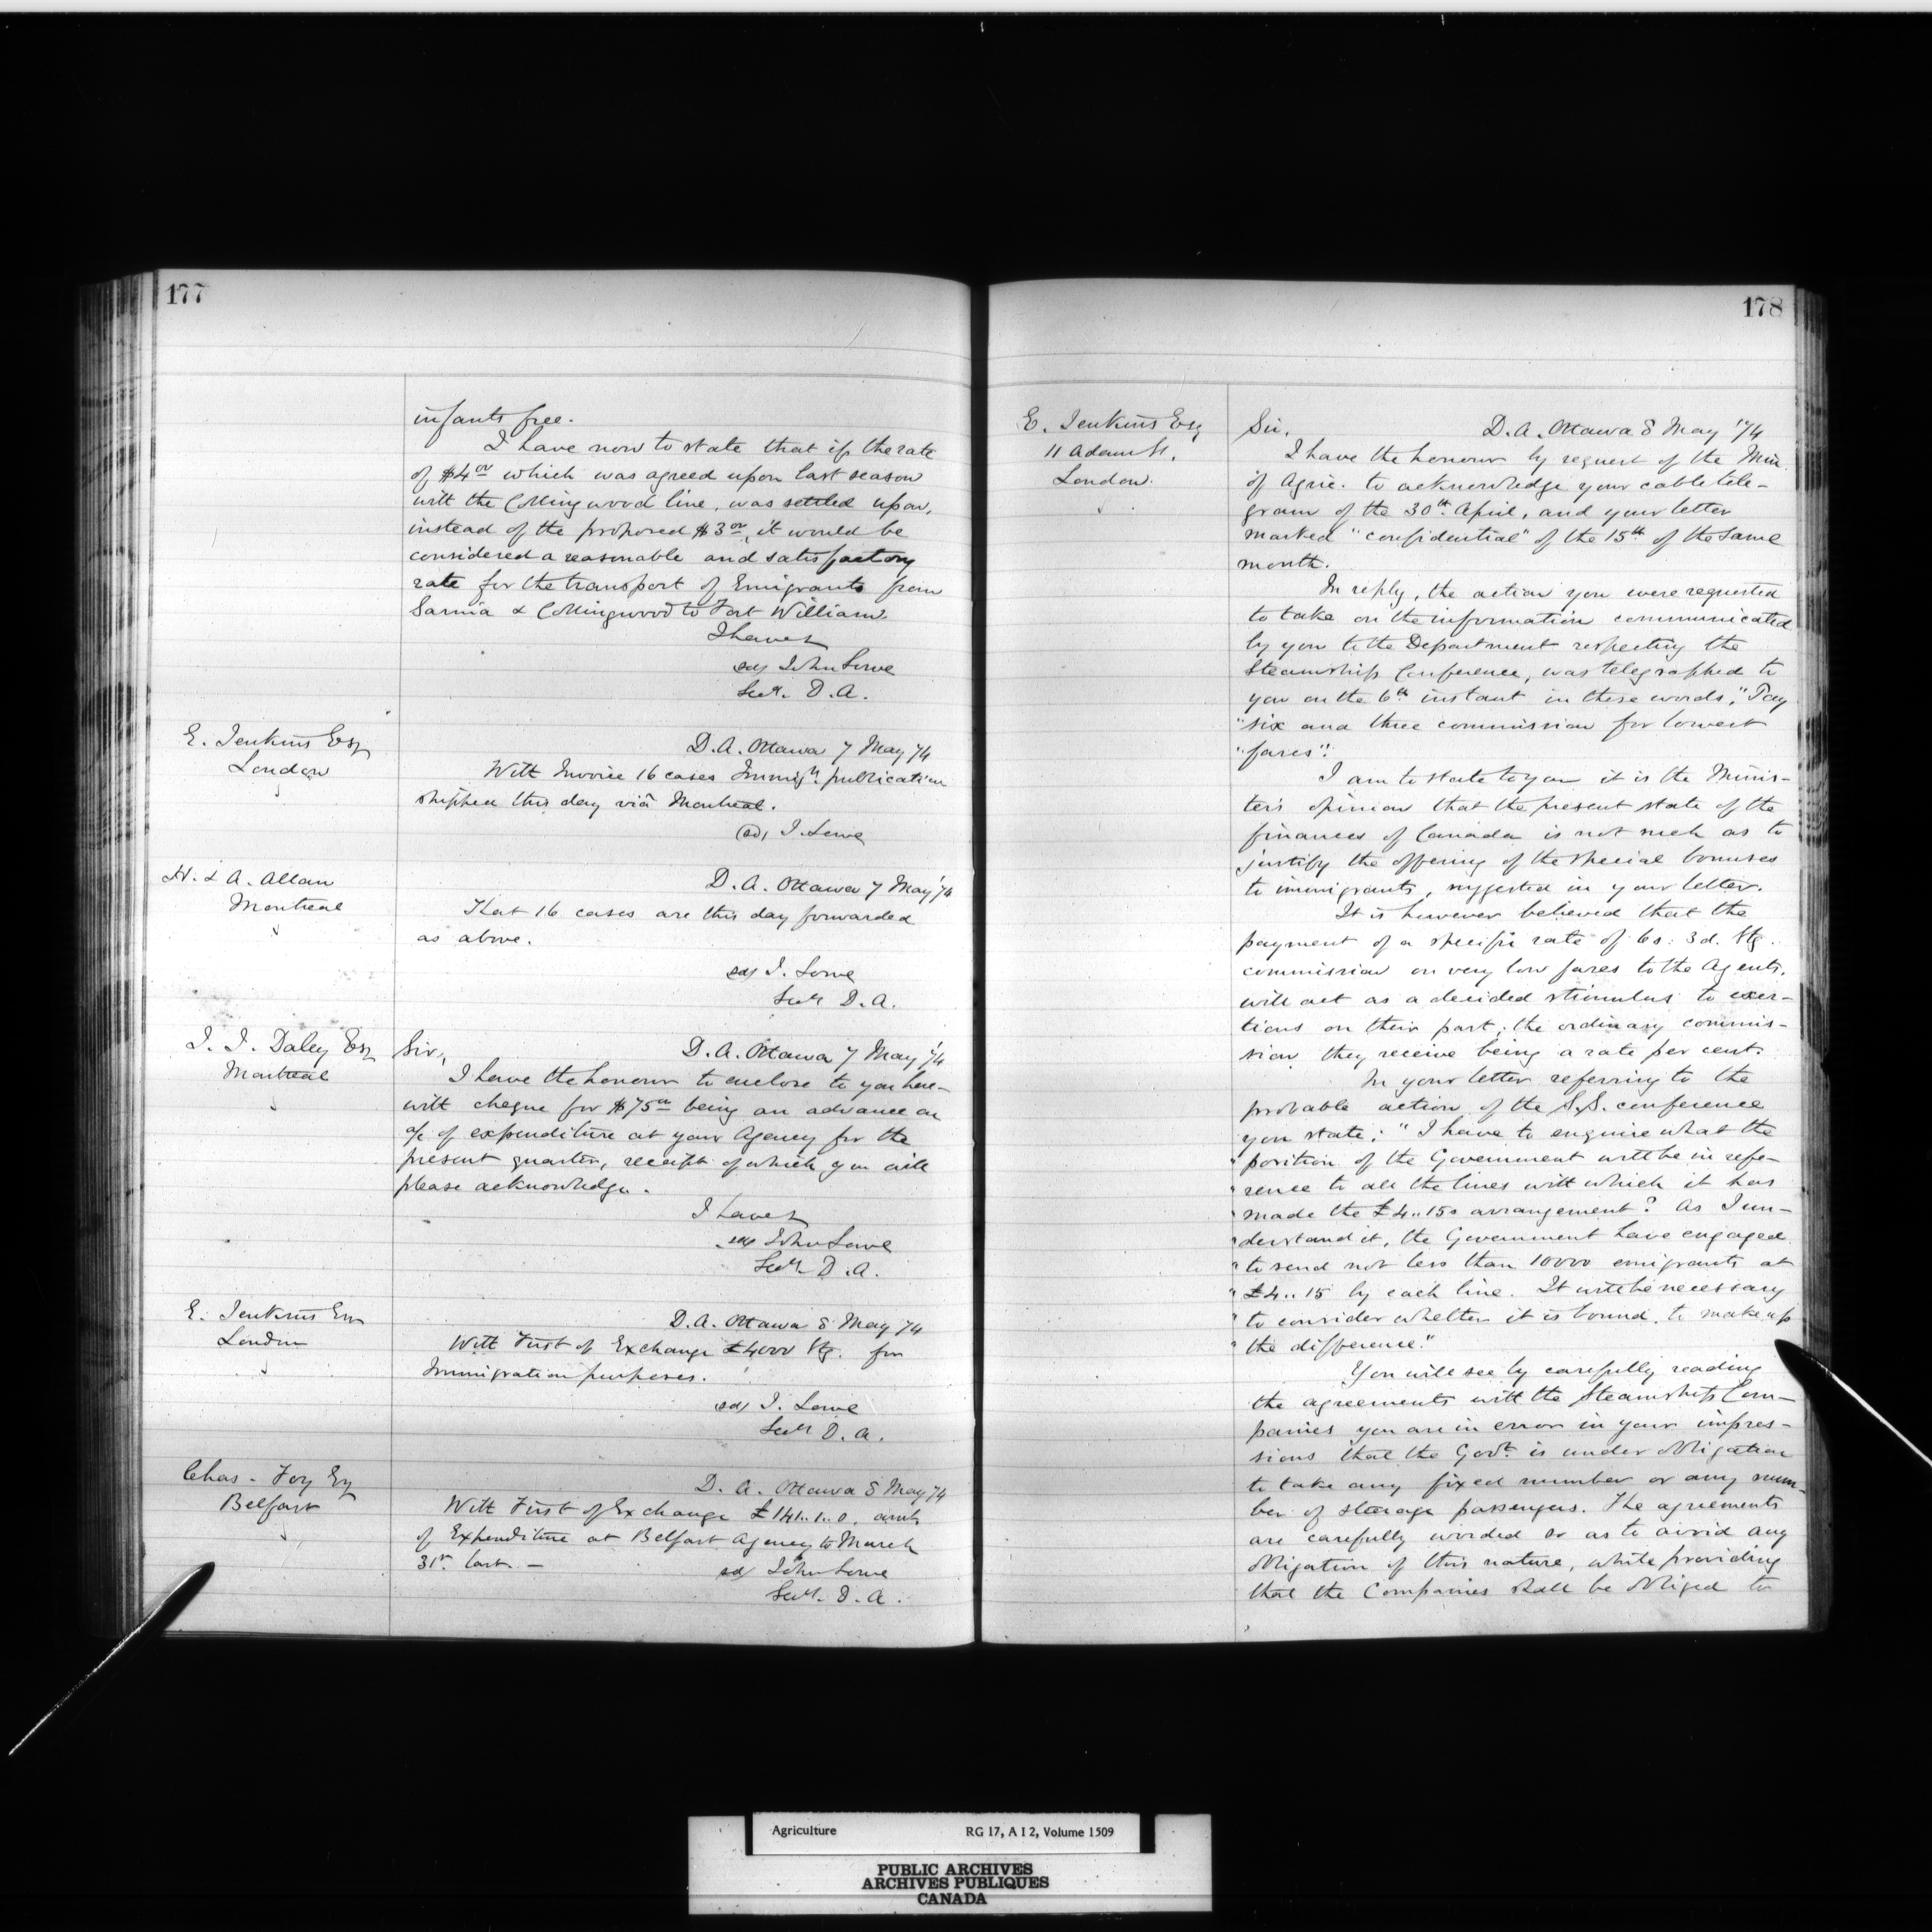 177
infants free.
I have now to state that if the rate
of $4.00 which was agreed upon last season
with the Collingwood line, was settled upon,
instead of the proposed $3.00, it would be
considered a reasonable and satisfactory
rate for the transport of Emigrants from
Sarnia & Collingwood to Fort William.
I have &
sd/ John Lowe
Secy. D.A.
E. Jenkins Esq
London
D.A. Ottawa 7 May 74
With Invoice 16 cases Immign. publication
shipped this day viâ Montreal.
(sd) J. Lowe
H. & A. Allan
Montreal
D.A. Ottawa 7 May '74
That 16 cases are this day forwarded
as above.
sd/ J. Lowe
Secy D.A.
J. J. Daley Esq
Montreal
Sir,
D.A. Ottawa 7 May '74
I have the honour to enclose to you here-
with cheque for $75.00 being an advance on
a/c of expenditure at your Agency for the
present quarter, receipt of which you will
please acknowledge.
I have &
sd/ John Lowe
Secy. D.A.
E. Jenkins Esq
London
D.A. Ottawa 8 May 74
With First of Exchange £4000 Stg. for
Immigration purposes.
sd/ J. Lowe
Secy D.A.
Chas. Foy Esq
Belfast
D.A. Ottawa 8 May 74
With First of Exchange £141..1..0. amt.
of Expenditure at Belfast Agency to March
31st last. -
sd/ John Lowe
Secy. D.A.
178
E. Jenkins Esq
11 Adam St.
London.
Sir,
D.A. Ottawa 8 May '74
I have the honour by request of the Min.
of Agric. to acknowledge your cable tele-
gram of the 30th April, and your letter
marked "confidential" of the 15th of the same
month.
In reply, the action you were requested
to take on the information communicated
by you to the Department respecting the
Steamship Conference, was telegraphed to
you on the 6th instant in these words, "Pay
"six and three commission for lowest
"fares".
I am to state to you it is the Minis-
ter's opinion that the present state of the
finances of Canada is not such as to
justify the offering of the special bonuses
to immigrants, suggested in your letter.
It is however believed that the
payment of a specific rate of 6s: 3d. Stg.
commission on very low fares to the Agents,
will act as a decided stimulus to exer-
tions on their part; the ordinary commis-
sion they receive being a rate per cent.
In your letter referring to the
probable action of the S.S. conference
you state: "I have to enquire what the
"position of the Government will be in refe-
"rence to all the lines with which it has
"made the £4..15s arrangement? As I un-
"derstand it, the Government have engaged
"to send not less than 10000 emigrants at
"£4..15 by each line. It will be necessary
"to consider whether it is bound to make up
"the difference."
You will see by carefully reading
the agreements with the Steamship Com-
panies you are in error in your impres-
sions that the Govt. is under obligation
to take any fixed number or any num-
ber of steerage passengers. The agreements
are carefully worded so as to avoid any
obligation of this nature, while providing
that the Companies shall be obliged to
Agriculture RG 17, A I 2, Volume 1509
PUBLIC ARCHIVES
ARCHIVES PUBLIQUES
CANADA